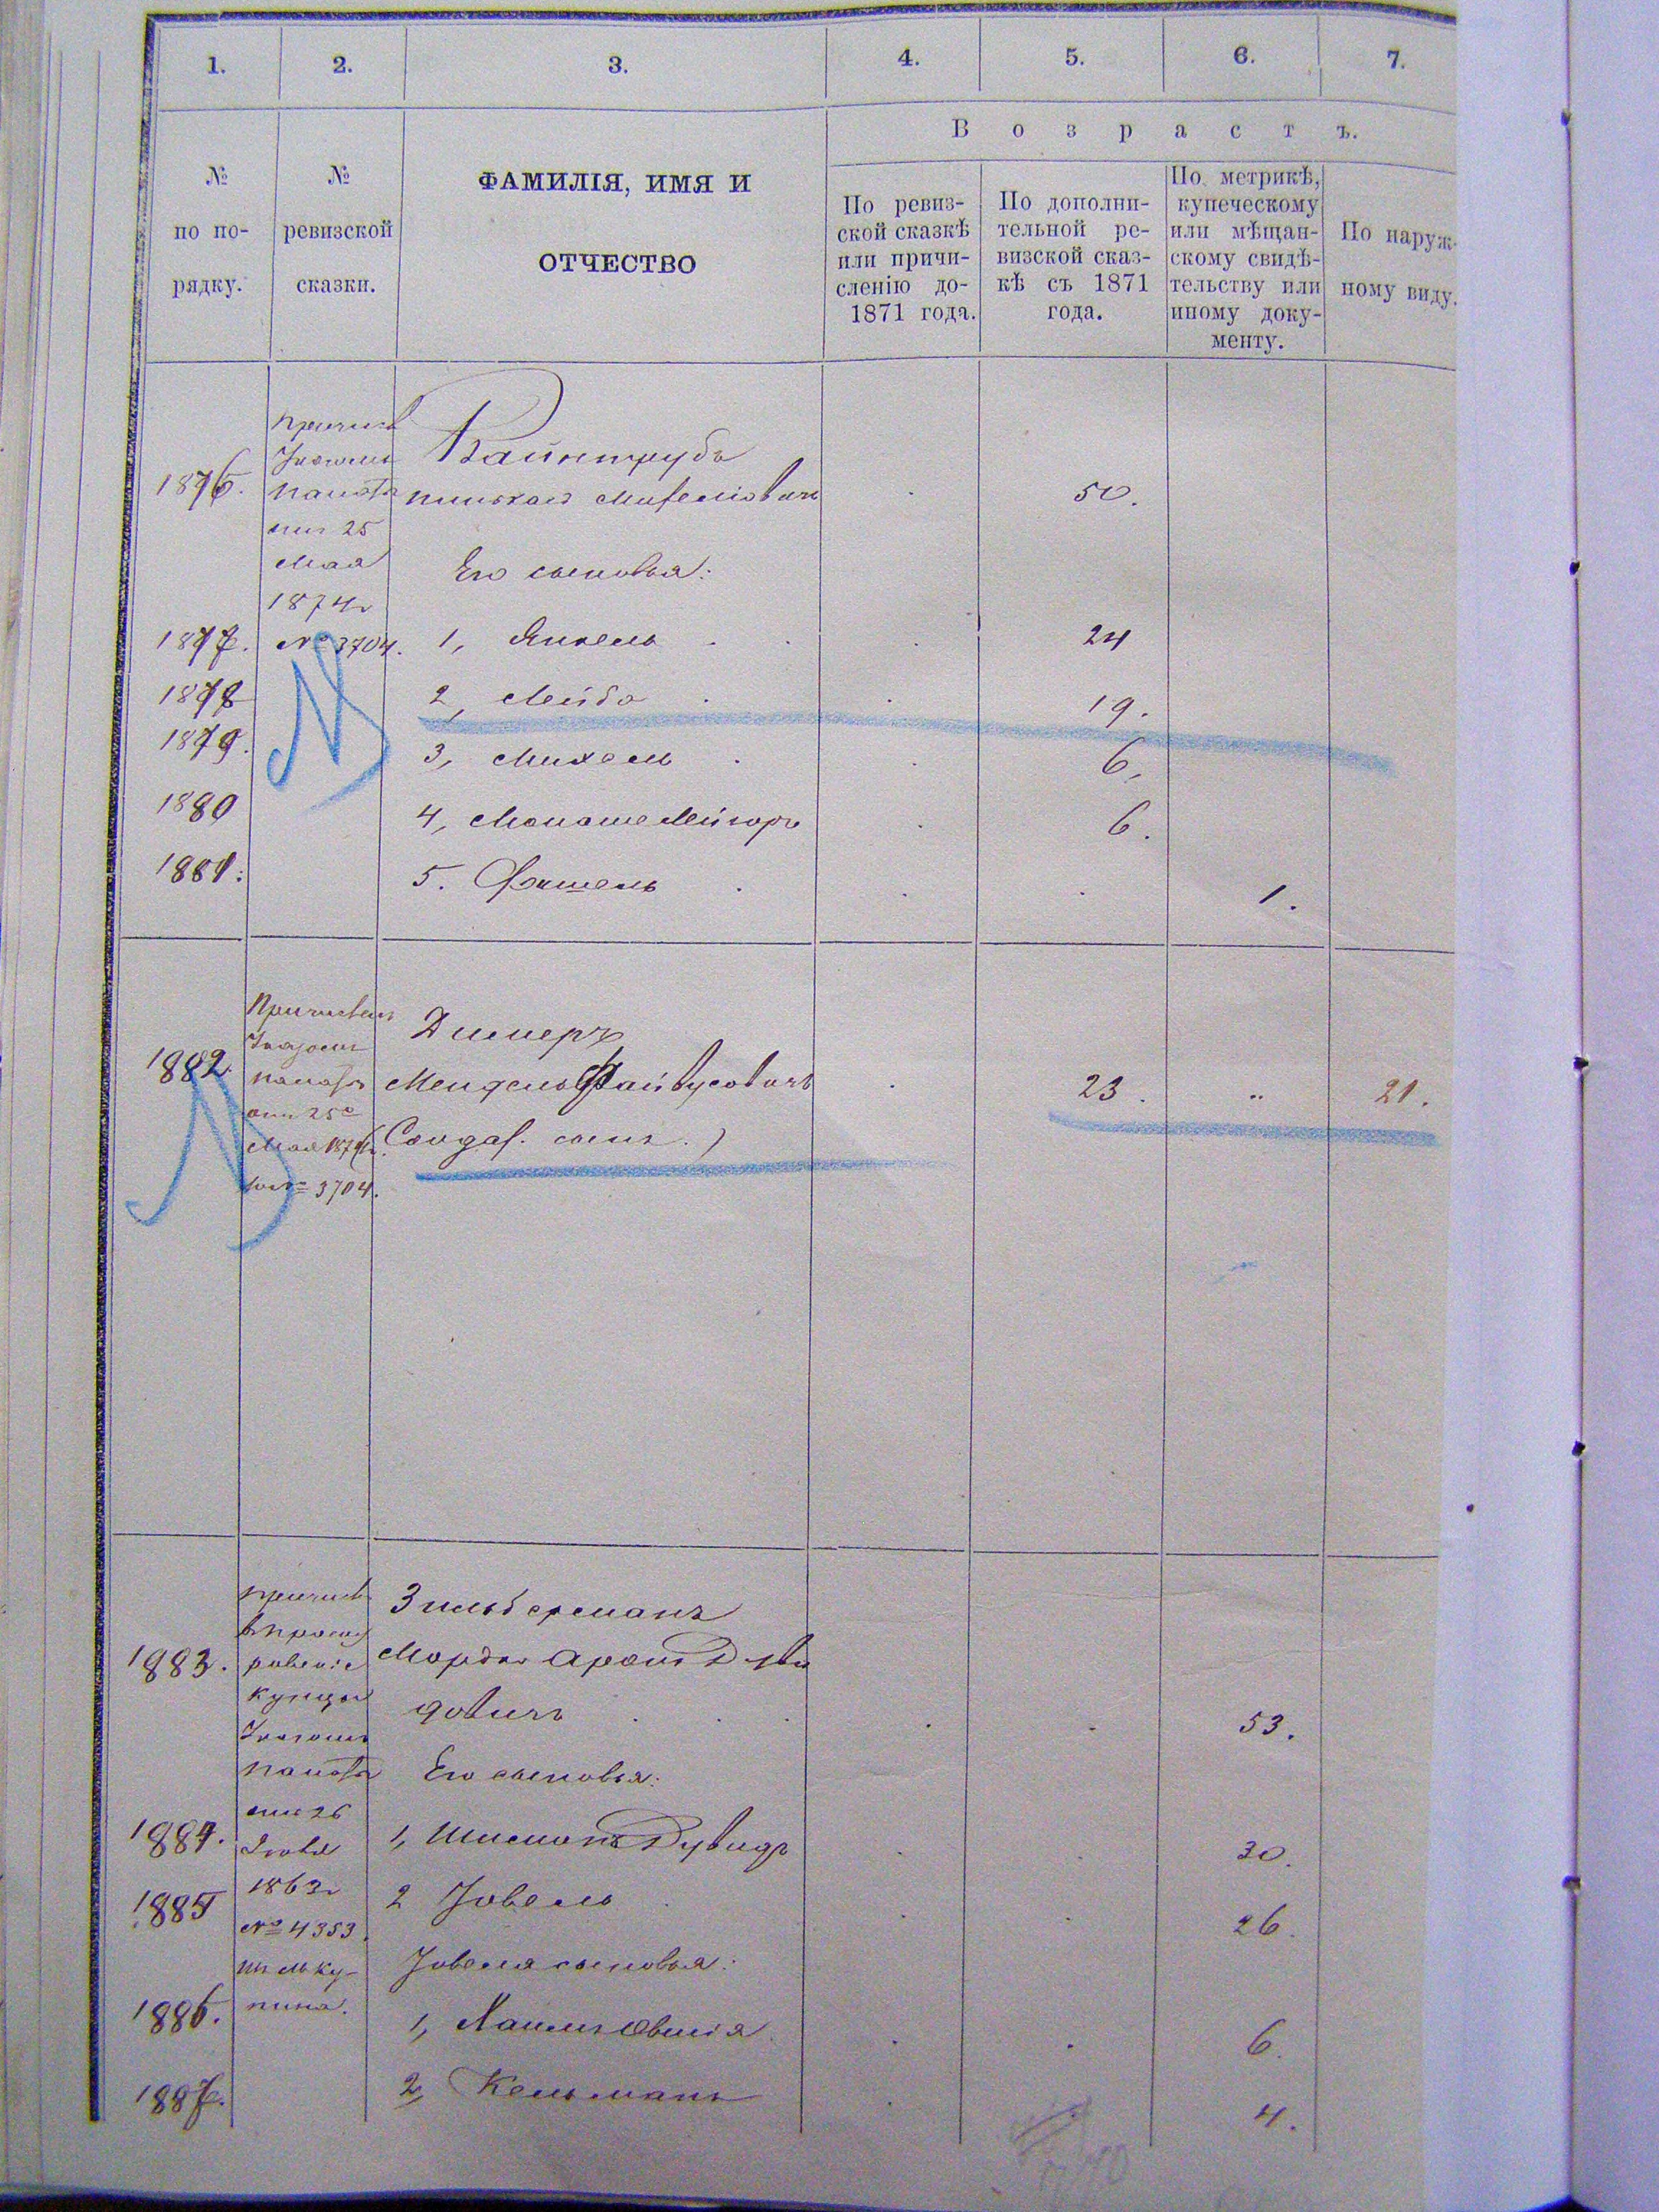 1. 2. 3. 4. 5. 6. 7.
В о з р а с т ъ.
№ по по- рядку.
№ ревизской сказки.
ФАМИЛІЯ, ИМЯ И
ОТЧЕСТВО
По ревиз-
ской сказкѣ
или причи-
сленію до-
1871 года.
По дополни-
тельной ре-
визской сказ-
кѣ съ 1871
года.
По метрикѣ,
купеческому
или мѣщан-
скому свидѣ-
тельству или
иному доку-
менту.
По наруж-
ному виду.
Причисл
Указомъ
палаты
отъ 25
Мая
1874г
№ 3704.
Вайнтрубъ
1876. Пинхасъ Михелiовичъ 50.
Его сыновья:
1877. 1, Янкель 24
1878 2, Лейба 19.
1879. 3, Михель 6.
1880 4, Монаше Мейеръ 6.
1881. 5. Фишель 1.
Причислен
Указомъ
палаты
отъ 25
Мая 1874г.
за № 3704.
Димеръ
1882. Мендель Файвусовичъ 23. „ 21.
(Солдат. сынъ.)
Причисл
купцы
Указомъ
палаты
отъ 26
1863г
№ 4353
Зильберманъ
1883. Мордко Аронъ Дуви
довичъ 53.
Его сыновья:
1884. 1, Шимонъ Дувидъ 30.
1885 2 Іовель 26.
Іовеля сыновья:
1886. 1, Хаимъ Овшiя 6.
1887. 2, Кельманъ 4.